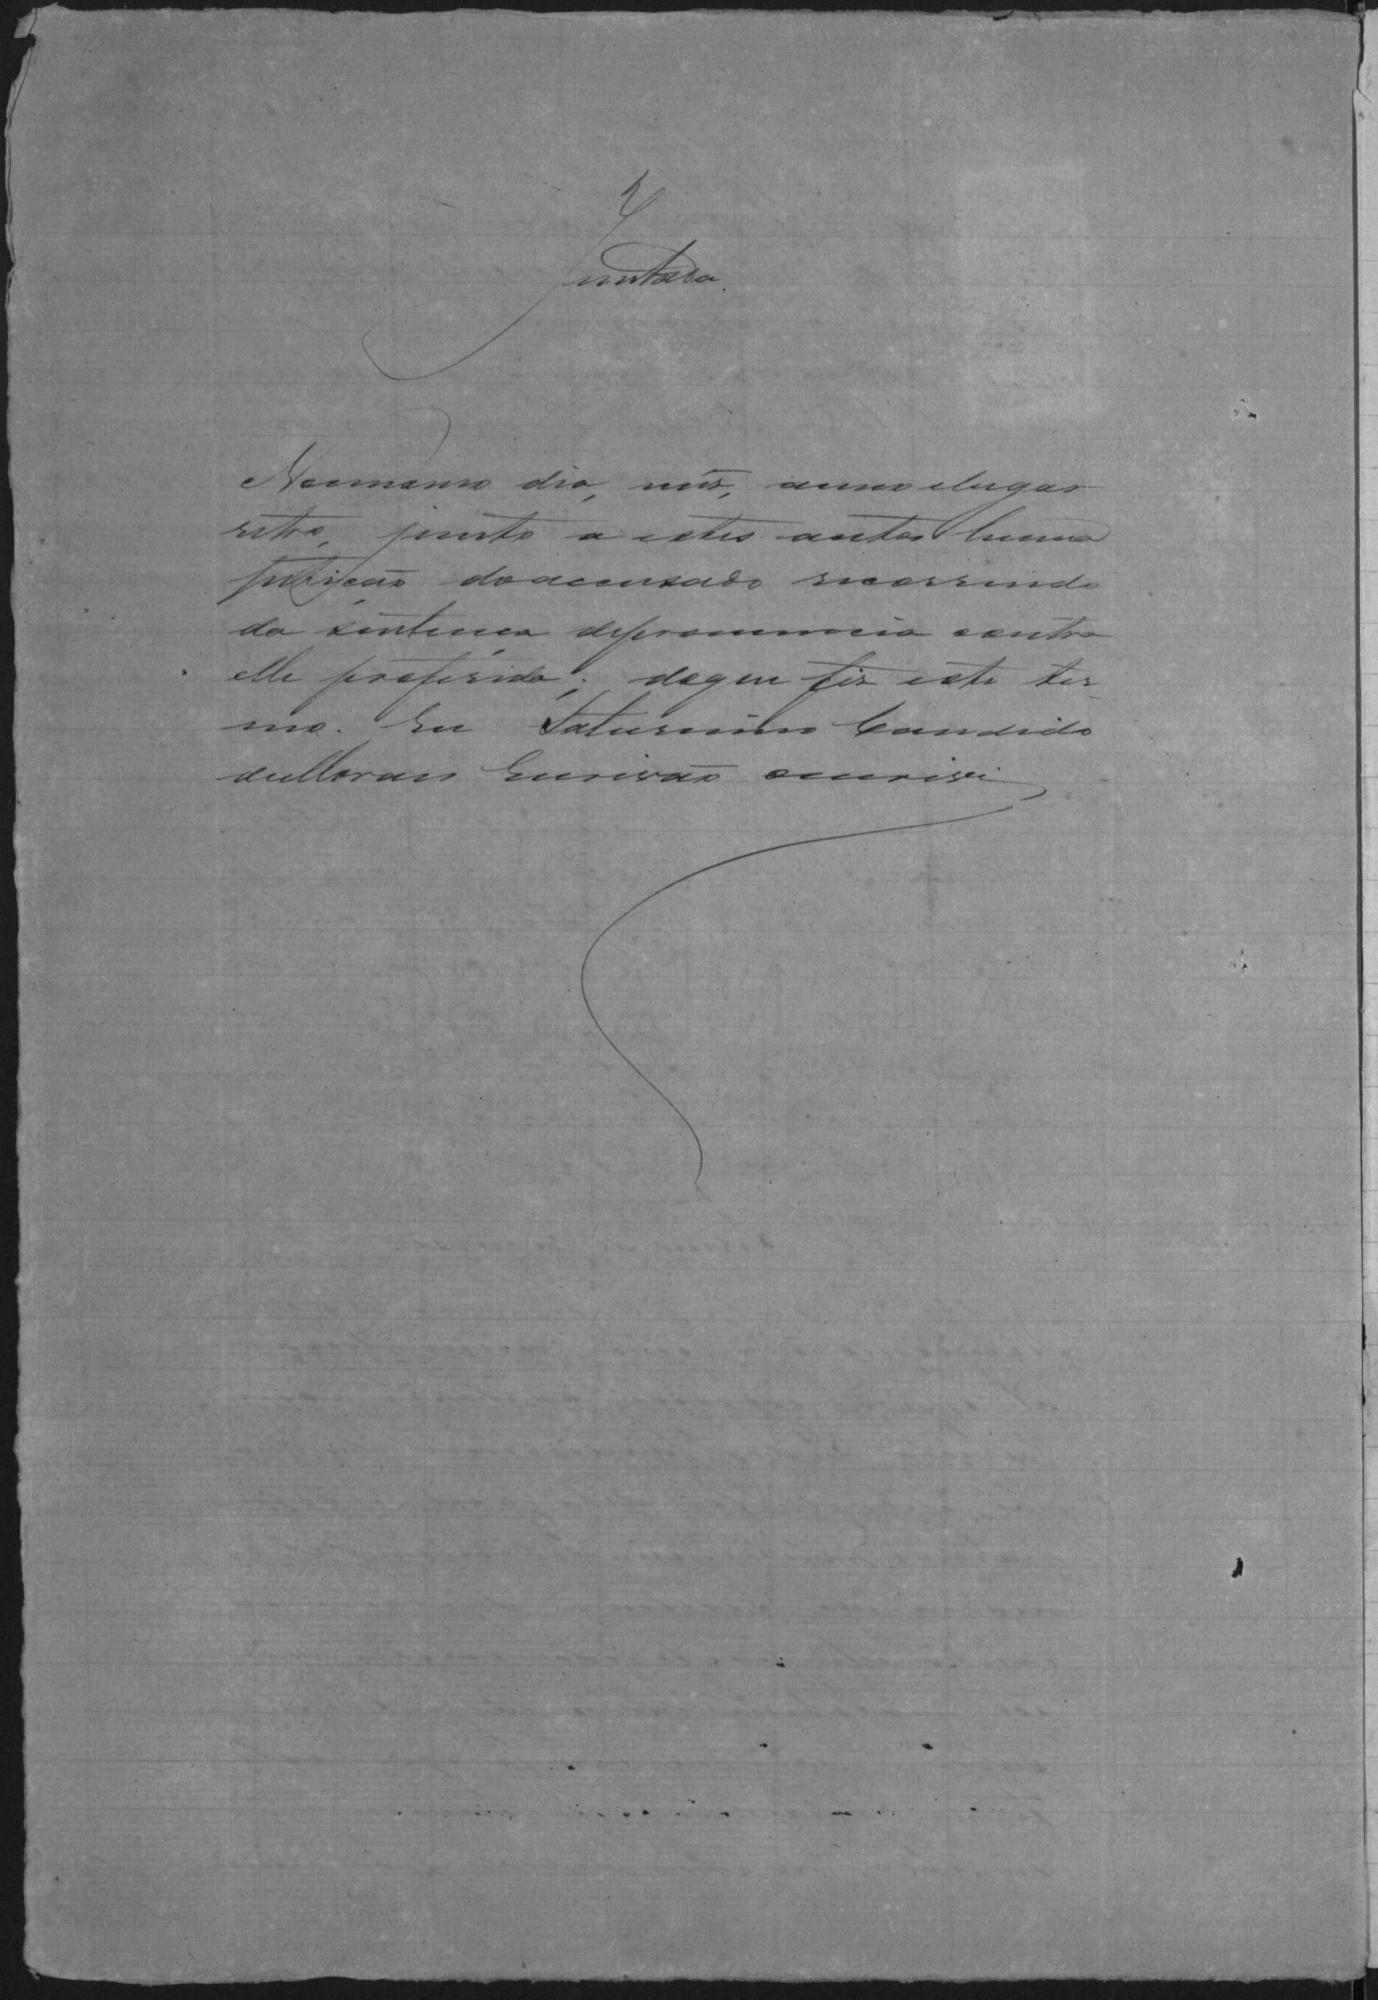 Juntada.
No mesmo dia, mês, anno e lugar
retro, junto a estes autos huma
petição do accusado recorrendo
da sentença de pronuncia contra
elle proferida; do que fiz este ter-
mo. Eu Saturnino Candido
de Moraes Escrivão o escrevi